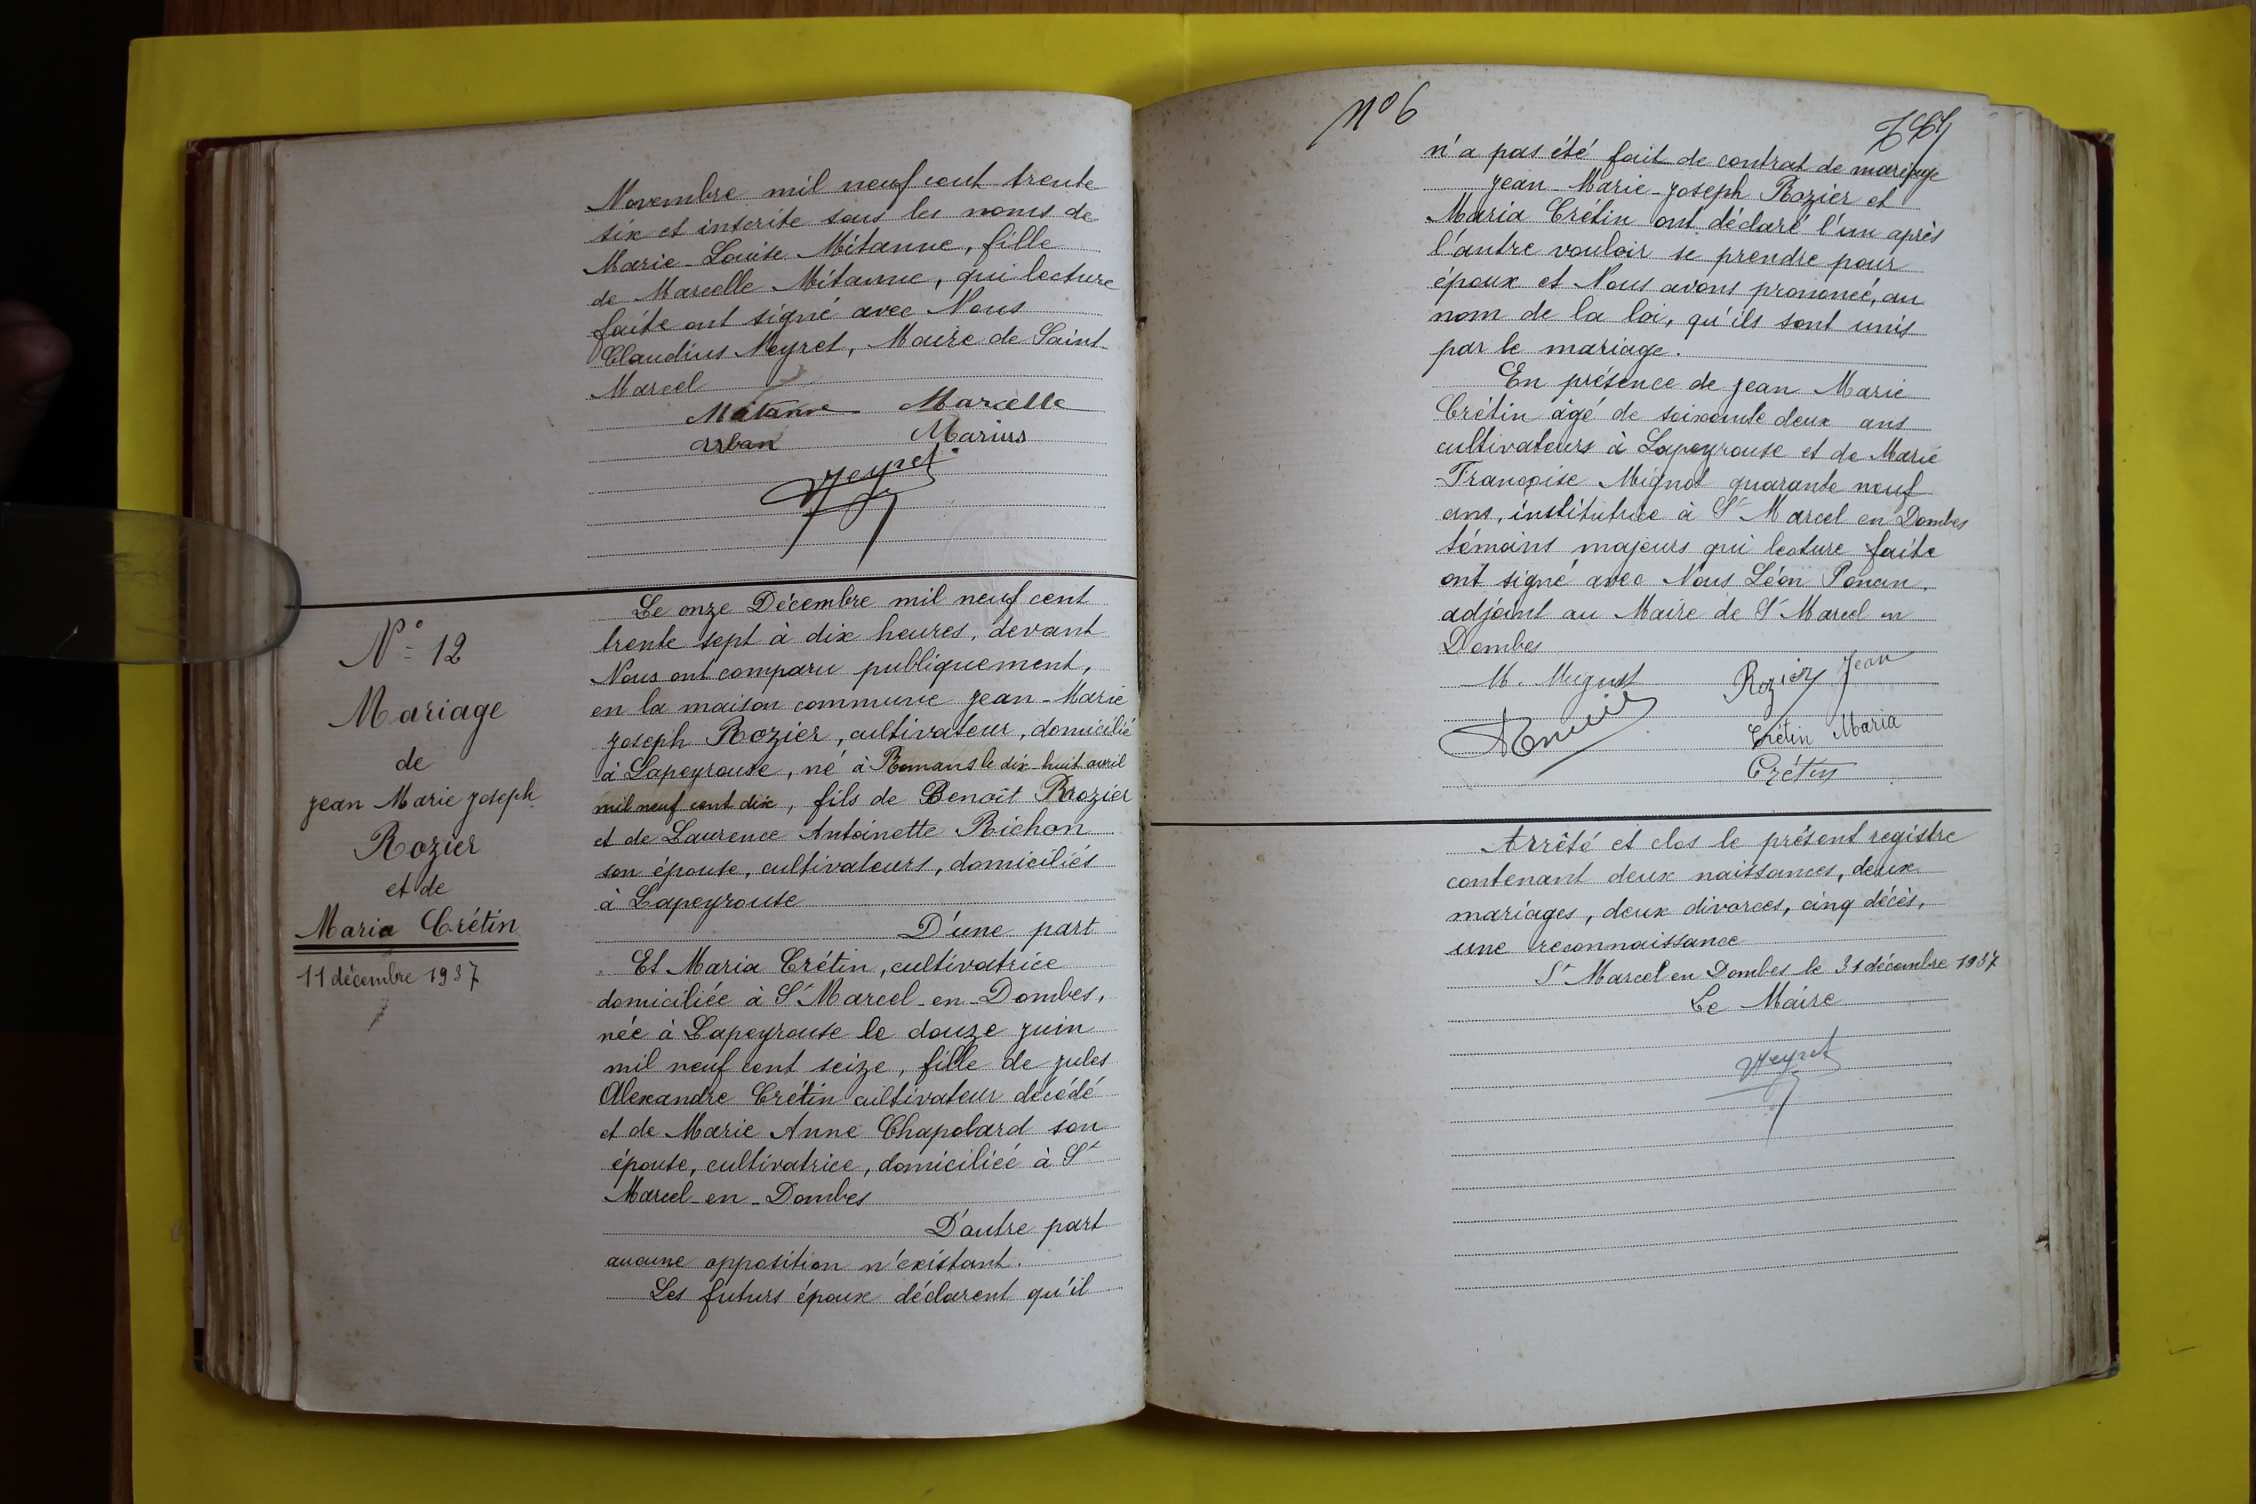 Novembre mil neuf cent trente
six et inscrite sous les noms de
Marie-Louise Mitanne, fille
de Marcelle Mitanne, qui lecture
faite ont signé avec Nous
Claudius Neyret, Maire de Saint-
Marcel
Mitanne Marcelle
Marius
Neyret
N° 12
Mariage
de
Jean Marie Joseph
Rozier
et de
Maria Crétin
11 décembre 1937
Le onze Décembre mil neuf cent
trente sept à dix heures, devant
Nous ont comparu publiquement,
en la maison commune Jean-Marie
Joseph Rozier, cultivateur, domicilié
à Lapeyrouse, né à Romans le dix-huit avril
mil neuf cent dix, fils de Benoît Rozier
et de Laurence Antoinette Richon
son épouse, cultivateurs, domiciliés
à Lapeyrouse
D'une part
Et Maria Crétin, cultivatrice
domiciliée à St Marcel-en-Dombes,
née à Lapeyrouse le douze Juin
mil neuf cent seize, fille de Jules
Alexandre Crétin cultivateur décédé
et de Marie Anne Chapolard son
épouse, cultivatrice, domiciliée à St
Marcel-en-Dombes
D'autre part
aucune opposition n'existant.
Les futurs époux déclarent qu'il
N° 6
n'a pas été fait de contrat de mariage
Jean-Marie-Joseph Rozier et
Maria Crétin ont déclaré l'un après
l'autre vouloir se prendre pour
époux et Nous avons prononcé, au
nom de la loi, qu'ils sont unis
par le mariage.
En présence de Jean Marie
Crétin âgé de soixante deux ans
cultivateurs à Lapeyrouse et de Marie
Françoise Mignot quarante neuf
ans, institutrice à St Marcel en Dombes
témoins majeurs qui lecture faite
ont signé avec Nous Léon Ponan,
adjoint au Maire de St Marcel en
Dombes
M. Mignot Rozier Jean
Crétin Maria
Crétin
Arrêté et clos le présent registre
contenant deux naissances, deux
mariages, deux divorces, cinq décès,
une reconnaissance
St Marcel en Dombes le 31 décembre 1937
Le Maire
Neyret